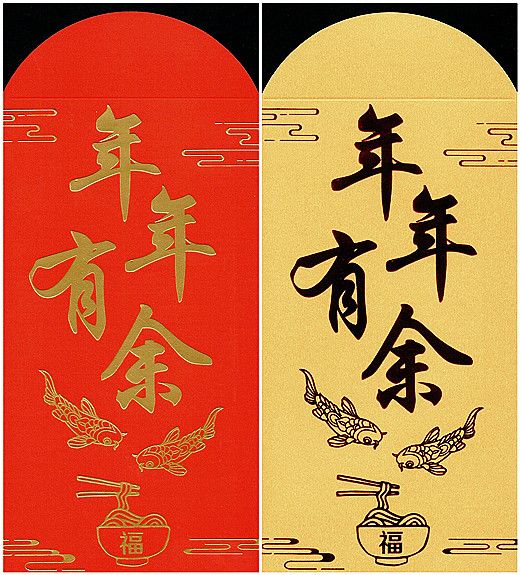 年
年
有
余
福
年
年
有
余
福